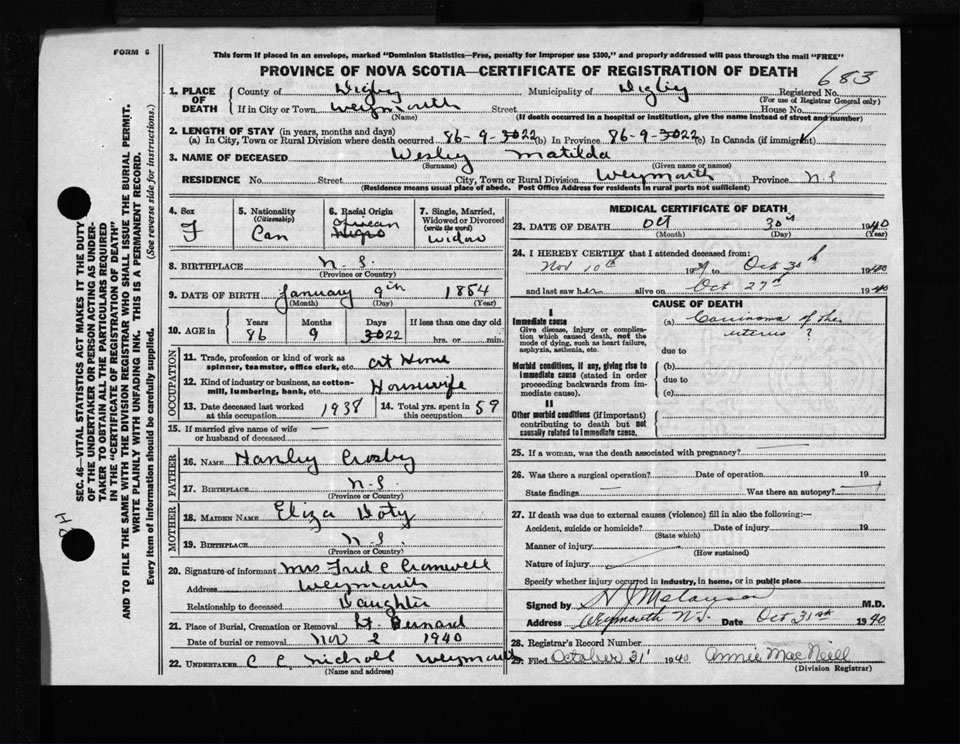 FORM 6
This form if placed in an envelope, marked "Dominion Statistics—Free, penalty for improper use $300," and properly addressed will pass through the mail "FREE"
PROVINCE OF NOVA SCOTIA—CERTIFICATE OF REGISTRATION OF DEATH
683
1. PLACE OF DEATH
County of Digby Municipality of Digby Registered No.
(For use of Registrar General only)
If in City or Town Weymouth Street House No.
(Name) (If death occurred in a hospital or institution, give the name instead of street and number)
2. LENGTH OF STAY (in years, months and days)
(a) In City, Town or Rural Division where death occurred 86-9-3022 (b) In Province 86-9-3022 (c) In Canada (if immigrant)
3. NAME OF DECEASED Wesley Matilda
(Surname) (Given name or names)
RESIDENCE No. Street City, Town or Rural Division Weymouth Province N.S
(Residence means usual place of abode. Post Office Address for residents in rural parts not sufficient)
4. Sex
F
5. Nationality
(Citizenship)
Can
6. Racial Origin
African
Negro
7. Single, Married, Widowed or Divorced
(write the word)
widow
8. BIRTHPLACE N.S.
(Province or Country)
9. DATE OF BIRTH January 9th 1854
(Month) (Day) (Year)
10. AGE in
Years Months Days If less than one day old
86 9 3022 hrs. or min.
OCCUPATION
11. Trade, profession or kind of work as spinner, teamster, office clerk, etc. at Home
12. Kind of industry or business, as cotton-mill, lumbering, bank, etc. Housewife
13. Date deceased last worked at this occupation 1938
14. Total yrs. spent in this occupation 59
15. If married give name of wife or husband of deceased —
FATHER
16. NAME Hanley Crosby
17. BIRTHPLACE N.S
(Province or Country)
MOTHER
18. MAIDEN NAME Eliza Doty
19. BIRTHPLACE N.S.
(Province or Country)
20. Signature of informant Mrs Fred C Cromwell
Address Weymouth
Relationship to deceased Daughter
21. Place of Burial, Cremation or Removal St. Bernard
Date of burial or removal Nov 2 1940
22. UNDERTAKER C C Nicholl Weymouth
(Name and address)
MEDICAL CERTIFICATE OF DEATH
23. DATE OF DEATH Oct 30th 1940
(Month) (Day) (Year)
24. I HEREBY CERTIFY that I attended deceased from:
Nov 10th 1939 to Oct 30th 1940
and last saw her alive on Oct 27th 1940
CAUSE OF DEATH
I
Immediate cause
Give disease, injury or complication which caused death, not the mode of dying, such as heart failure, asphyxia, asthenia, etc.
(a) Carcinoma of the uterus ?
due to
Morbid conditions, if any, giving rise to immediate cause (stated in order proceeding backwards from immediate cause).
(b)
due to
(c)
II
Other morbid conditions (if important) contributing to death but not causally related to immediate cause.
25. If a woman, was the death associated with pregnancy?
26. Was there a surgical operation? Date of operation 19
State findings Was there an autopsy?
27. If death was due to external causes (violence) fill in also the following:—
Accident, suicide or homicide? Date of injury 19
(State which)
Manner of injury
(How sustained)
Nature of injury
Specify whether injury occurred in industry, in home, or in public place
Signed by H J Melanson M.D.
Address Weymouth N.S. Date Oct 31st 1940
28. Registrar's Record Number
29. Filed October 31 1940 Annie MacNeill
(Division Registrar)
SEC. 46—VITAL STATISTICS ACT MAKES IT THE DUTY
OF THE UNDERTAKER OR PERSON ACTING AS UNDERTAKER TO OBTAIN ALL THE PARTICULARS REQUIRED
IN THE "CERTIFICATE OF REGISTRATION OF DEATH"
AND TO FILE THE SAME WITH THE DIVISION REGISTRAR WHO SHALL ISSUE THE BURIAL PERMIT.
WRITE PLAINLY WITH UNFADING INK. THIS IS A PERMANENT RECORD.
Every item of information should be carefully supplied. (See reverse side for instructions.)